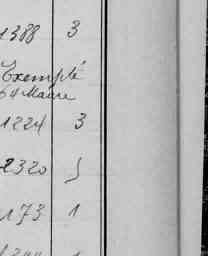 1388 3
Exempté
64 Maire
1224 3
2320 5
173 1